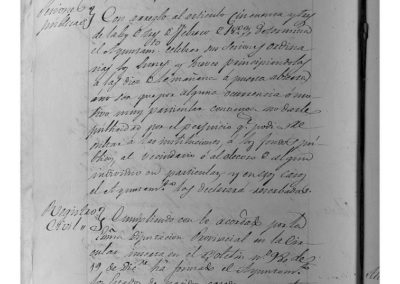 Con arreglo al articulo cincuenta y tres
de la ley de tres de Febrero de 1823 determina
el Ayuntam.to celebrar sus sesiones ordina-
rias los Lunes y Jueves principiandolas
a las diez de la mañana a puerta abierta
a no ser que por alguna ocurrencia o mo-
tivo muy particular convenga no darle
publicidad por el perjuicio q.e podria
a las instituciones, a los fondos pu-
blicos, al vecindario ó al decoro de algun
individuo en particular, y en cuyo caso
el Ayuntam.to las declarara
Registro
Civil
Cumpliendo con lo acordado por la
Exma Diputacion Provincial en la Cir-
cular inserta en el Boletin nº de
19 de Dic.e ha el Ayuntam.to